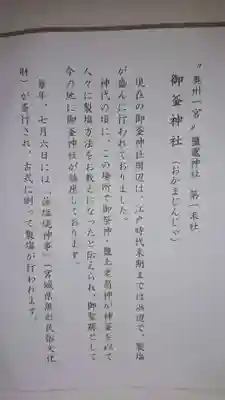 "奥州一宮" 鹽竈神社 第一末社
御釜神社 (おかまじんじゃ)
現在の御釜神社周辺は、江戸時代末期までは海辺で、製塩
が盛んに行われておりました。
神代の頃に、この場所で御祭神・鹽土老翁神が神釜を以て
人々に製塩方法をお教えになったと伝えられ、御聖蹟として
今の地に御釜神社が鎮座しております。
毎年、七月六日には「藻塩焼神事」(宮城県無形民俗文化
財)が斎行され、古式に則って製塩が行われます。